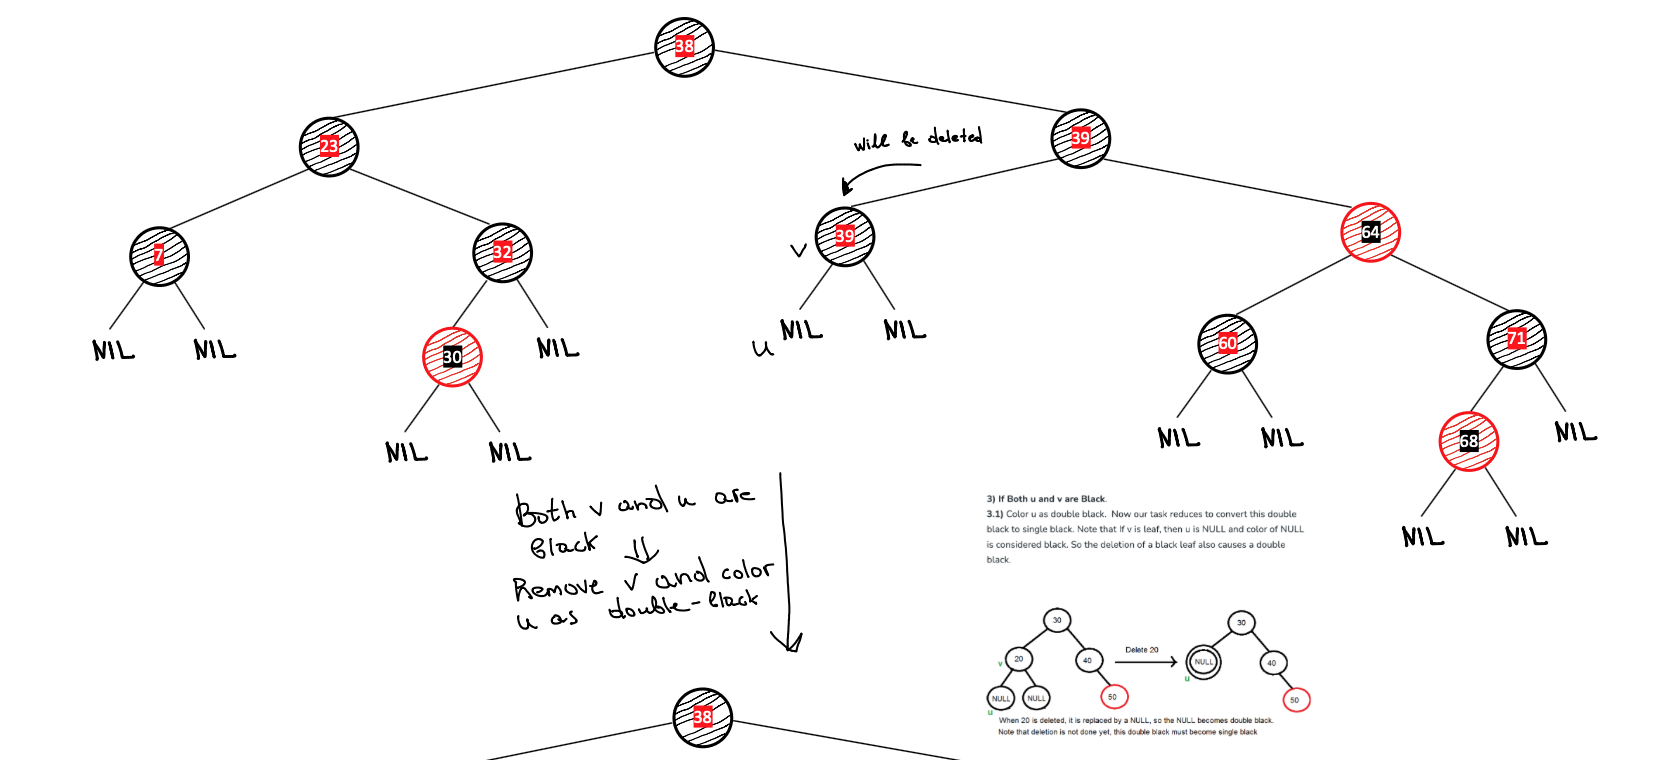 38
will be deleted
23
39
7
32
v
39
64
NIL
NIL
30
NIL
u
NIL
NIL
60
71
NIL
NIL
NIL
NIL
68
NIL
NIL
NIL
Both v and u are
black ⇓
Remove v and color
u as double-black
3) If Both u and v are Black.
3.1) Color u as double black. Now our task reduces to convert this double
black to single black. Note that If v is leaf, then u is NULL and color of NULL
is considered black. So the deletion of a black leaf also causes a double
black.
30
v
20
40
NULL
NULL
50
u
Delete 20
30
NULL
40
u
50
When 20 is deleted, it is replaced by a NULL, so the NULL becomes double black.
Note that deletion is not done yet, this double black must become single black
38